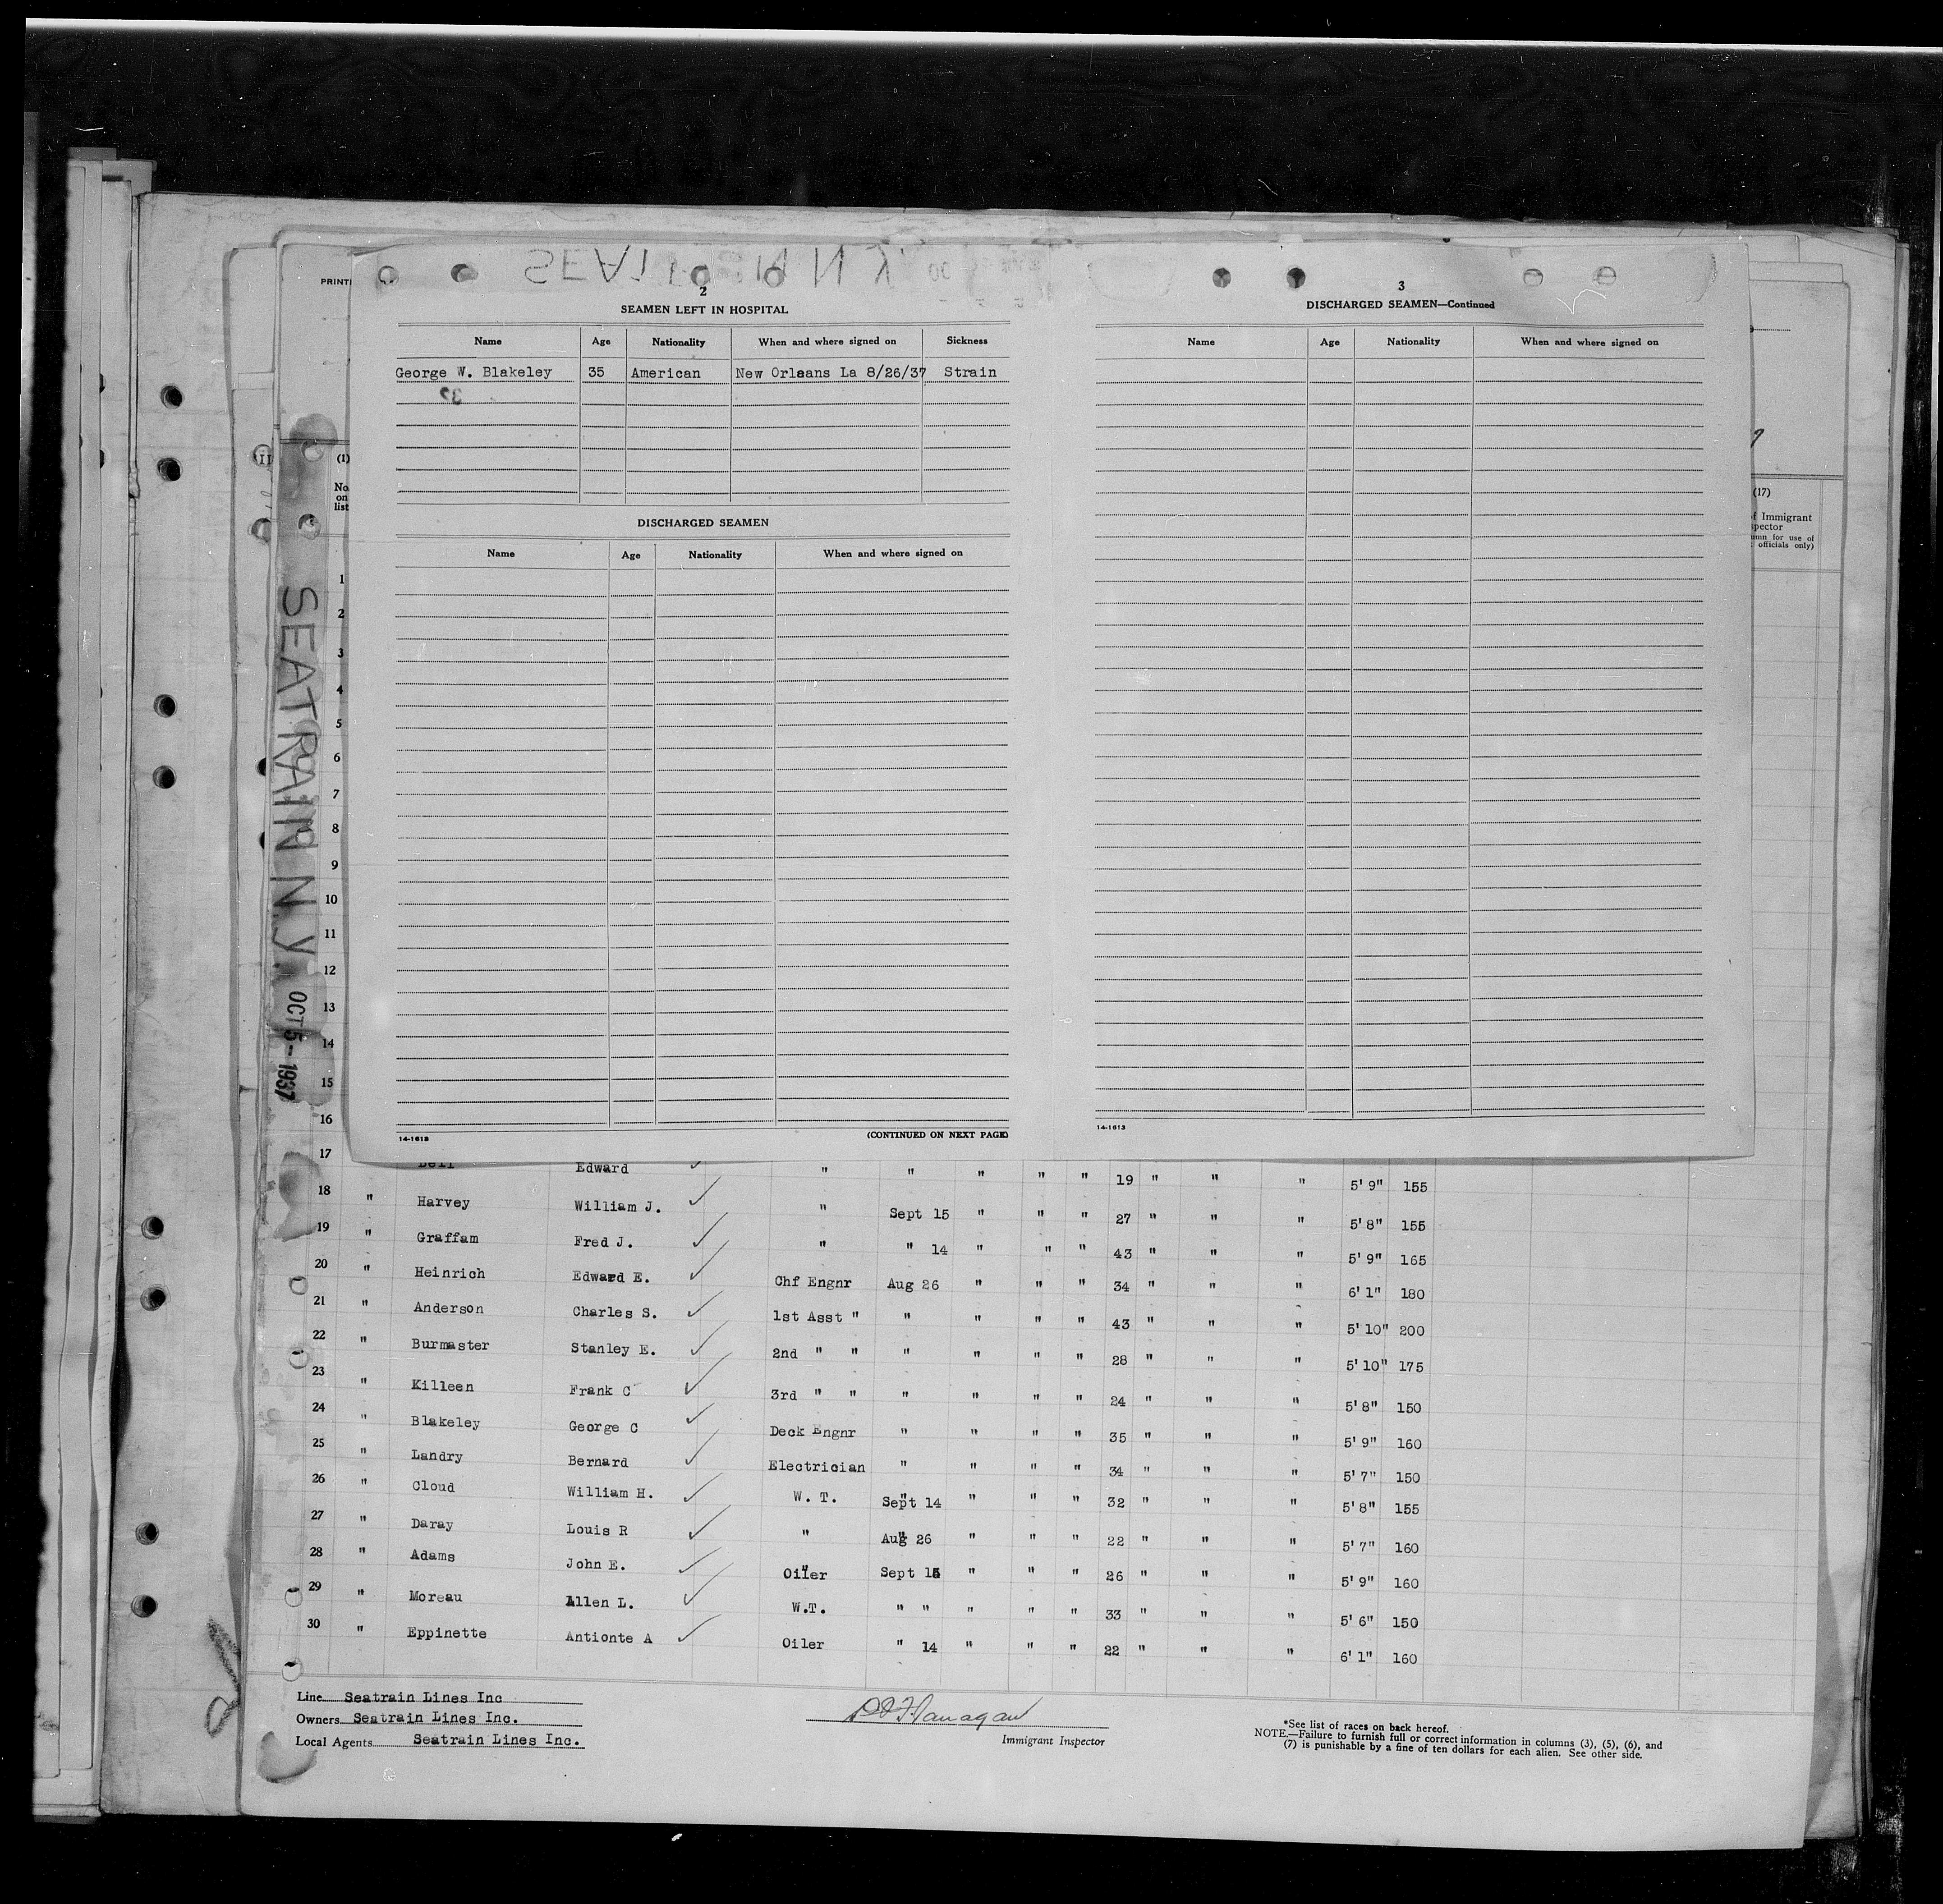 2
SEAMEN LEFT IN HOSPITAL
Name Age Nationality When and where signed on Sickness
George W. Blakeley 35 American New Orleans La 8/26/37 Strain
DISCHARGED SEAMEN
Name Age Nationality When and where signed on
14-1613
(CONTINUED ON NEXT PAGE)
3
DISCHARGED SEAMEN—Continued
Name Age Nationality When and where signed on
14-1613
PRINT
(1)
No.
on
list
(17)
of Immigrant
officials only)
SEATRAIN N.Y.
OCT 5 - 1937
1
2
3
4
5
6
7
8
9
10
11
12
13
14
15
16
17 Bell Edward " " " " " 19 " " " 5' 9" 155
18 " Harvey William J. " Sept 15 " " " 27 " " " 5' 8" 155
19 " Graffam Fred J. " " 14 " " " 43 " " " 5' 9" 165
20 " Heinrich Edward E. Chf Engnr Aug 26 " " " 34 " " " 6' 1" 180
21 " Anderson Charles S. 1st Asst " " " " " 43 " " " 5' 10" 200
22 " Burmaster Stanley E. 2nd " " " " " " 28 " " " 5' 10" 175
23 " Killeen Frank C 3rd " " " " " " 24 " " " 5' 8" 150
24 " Blakeley George C Deck Engnr " " " " 35 " " " 5' 9" 160
25 " Landry Bernard Electrician " " " " 34 " " " 5' 7" 150
26 " Cloud William H. W. T. Sept 14 " " " 32 " " " 5' 8" 155
27 " Daray Louis R " Aug 26 " " " 22 " " " 5' 7" 160
28 " Adams John E. Oiler Sept 15 " " " 26 " " " 5' 9" 160
29 " Moreau Allen L. W.T. " " " " " 33 " " " 5' 6" 150
30 " Eppinette Antionte A Oiler " 14 " " " 22 " " " 6' 1" 160
Line Seatrain Lines Inc
Owners Seatrain Lines Inc.
Local Agents Seatrain Lines Inc.
Flanagan
Immigrant Inspector
*See list of races on back hereof.
NOTE.—Failure to furnish full or correct information in columns (3), (5), (6), and
(7) is punishable by a fine of ten dollars for each alien. See other side.